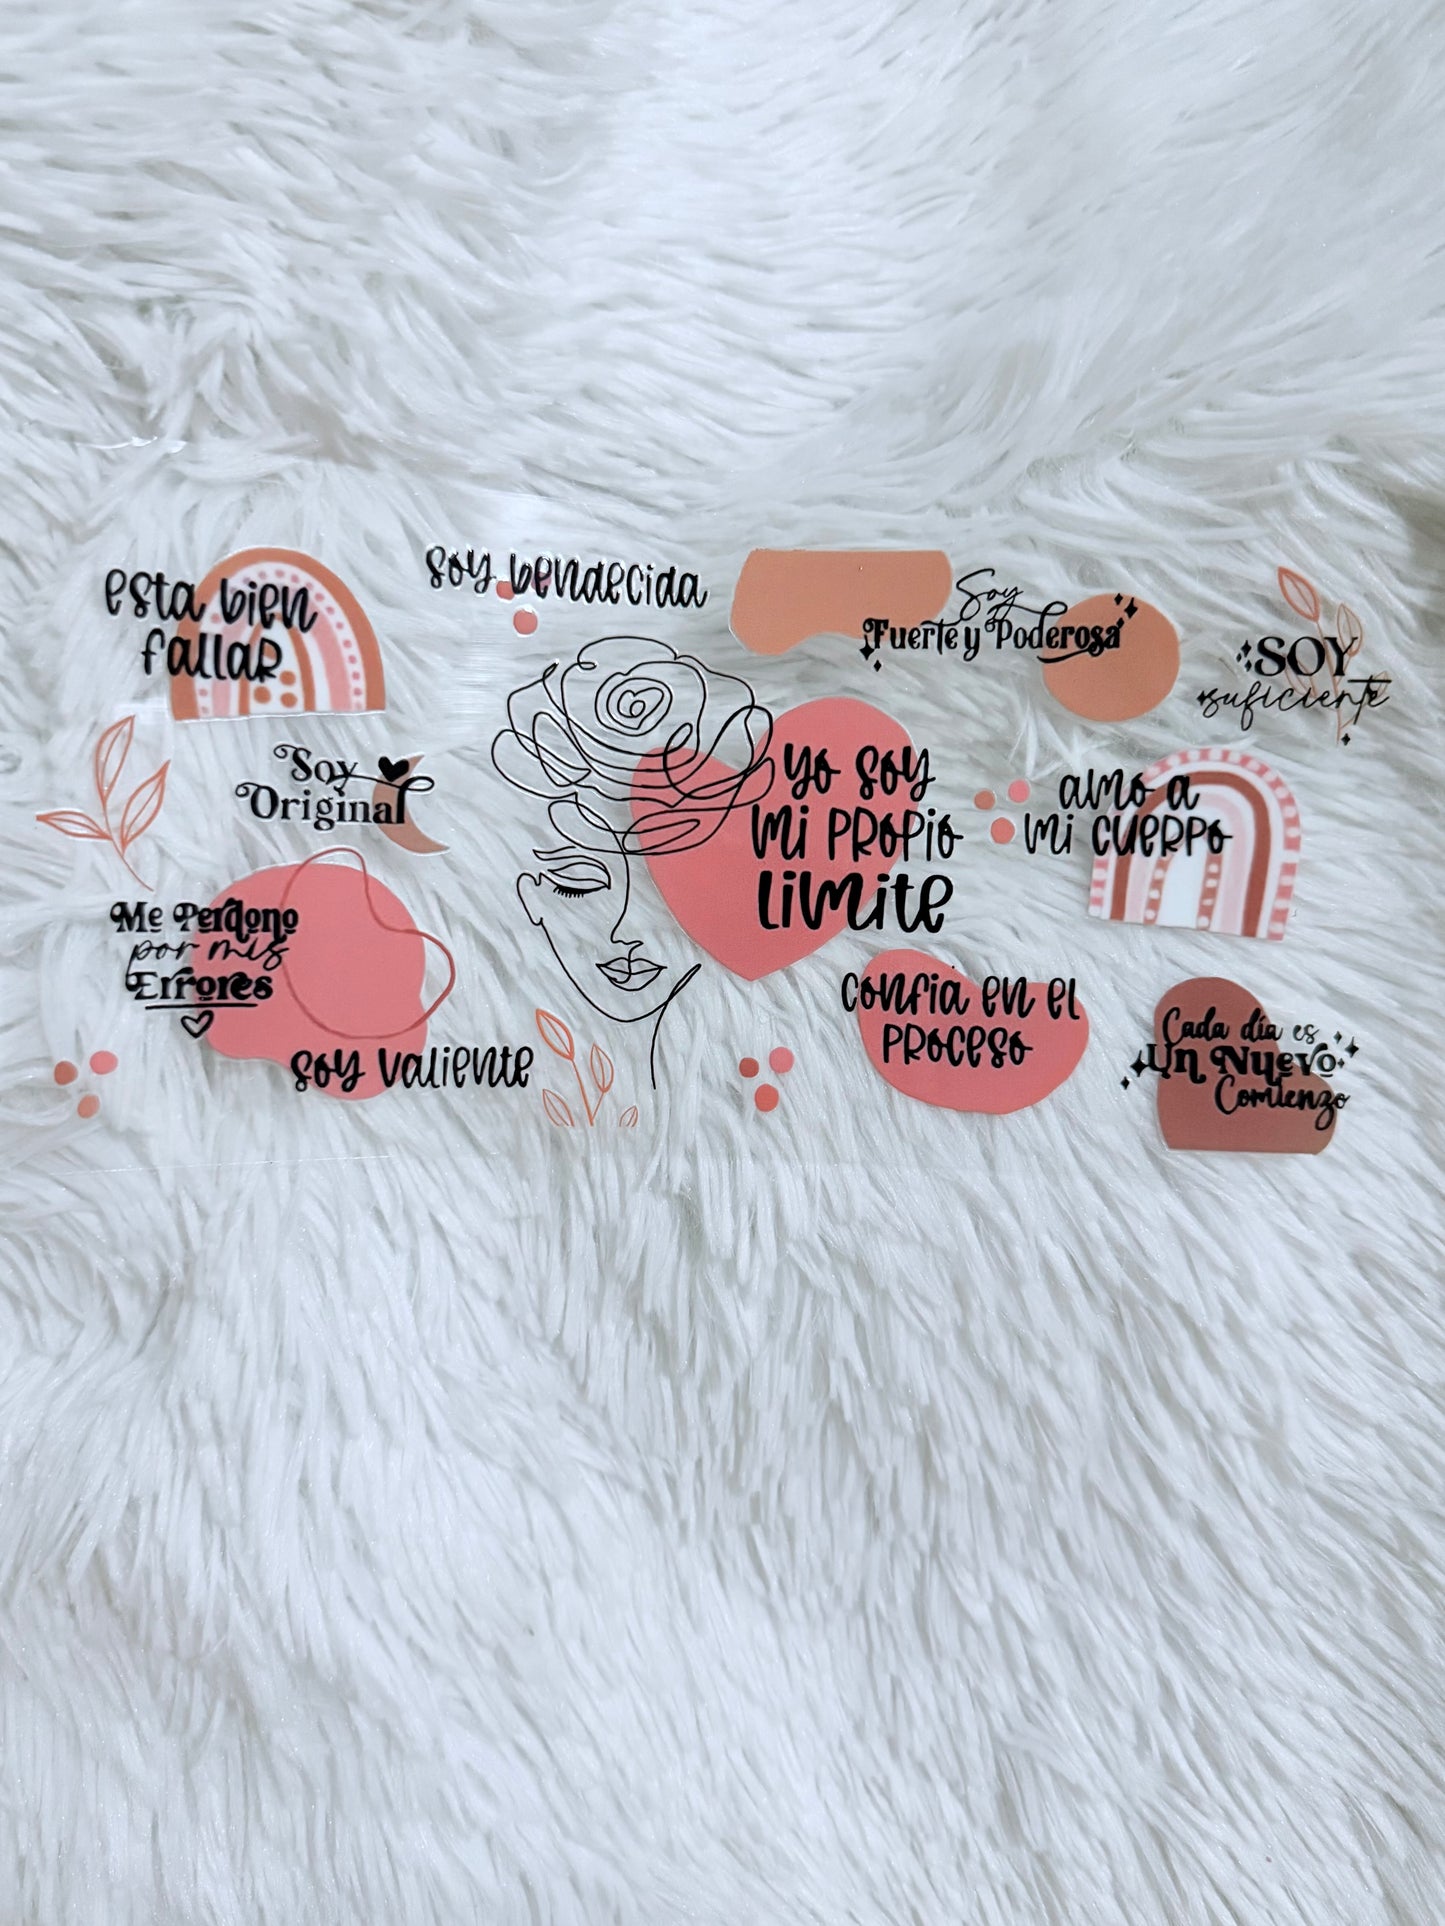 esta bien
fallar
soy bendecida
Soy
Fuerte y Poderosa
SOY
suficiente
Soy
Original
yo soy
mi propio
limite
amo a
mi cuerpo
Me Perdono
por mis
Errores
soy valiente
confia en el
proceso
Cada día es
Un Nuevo
Comienzo